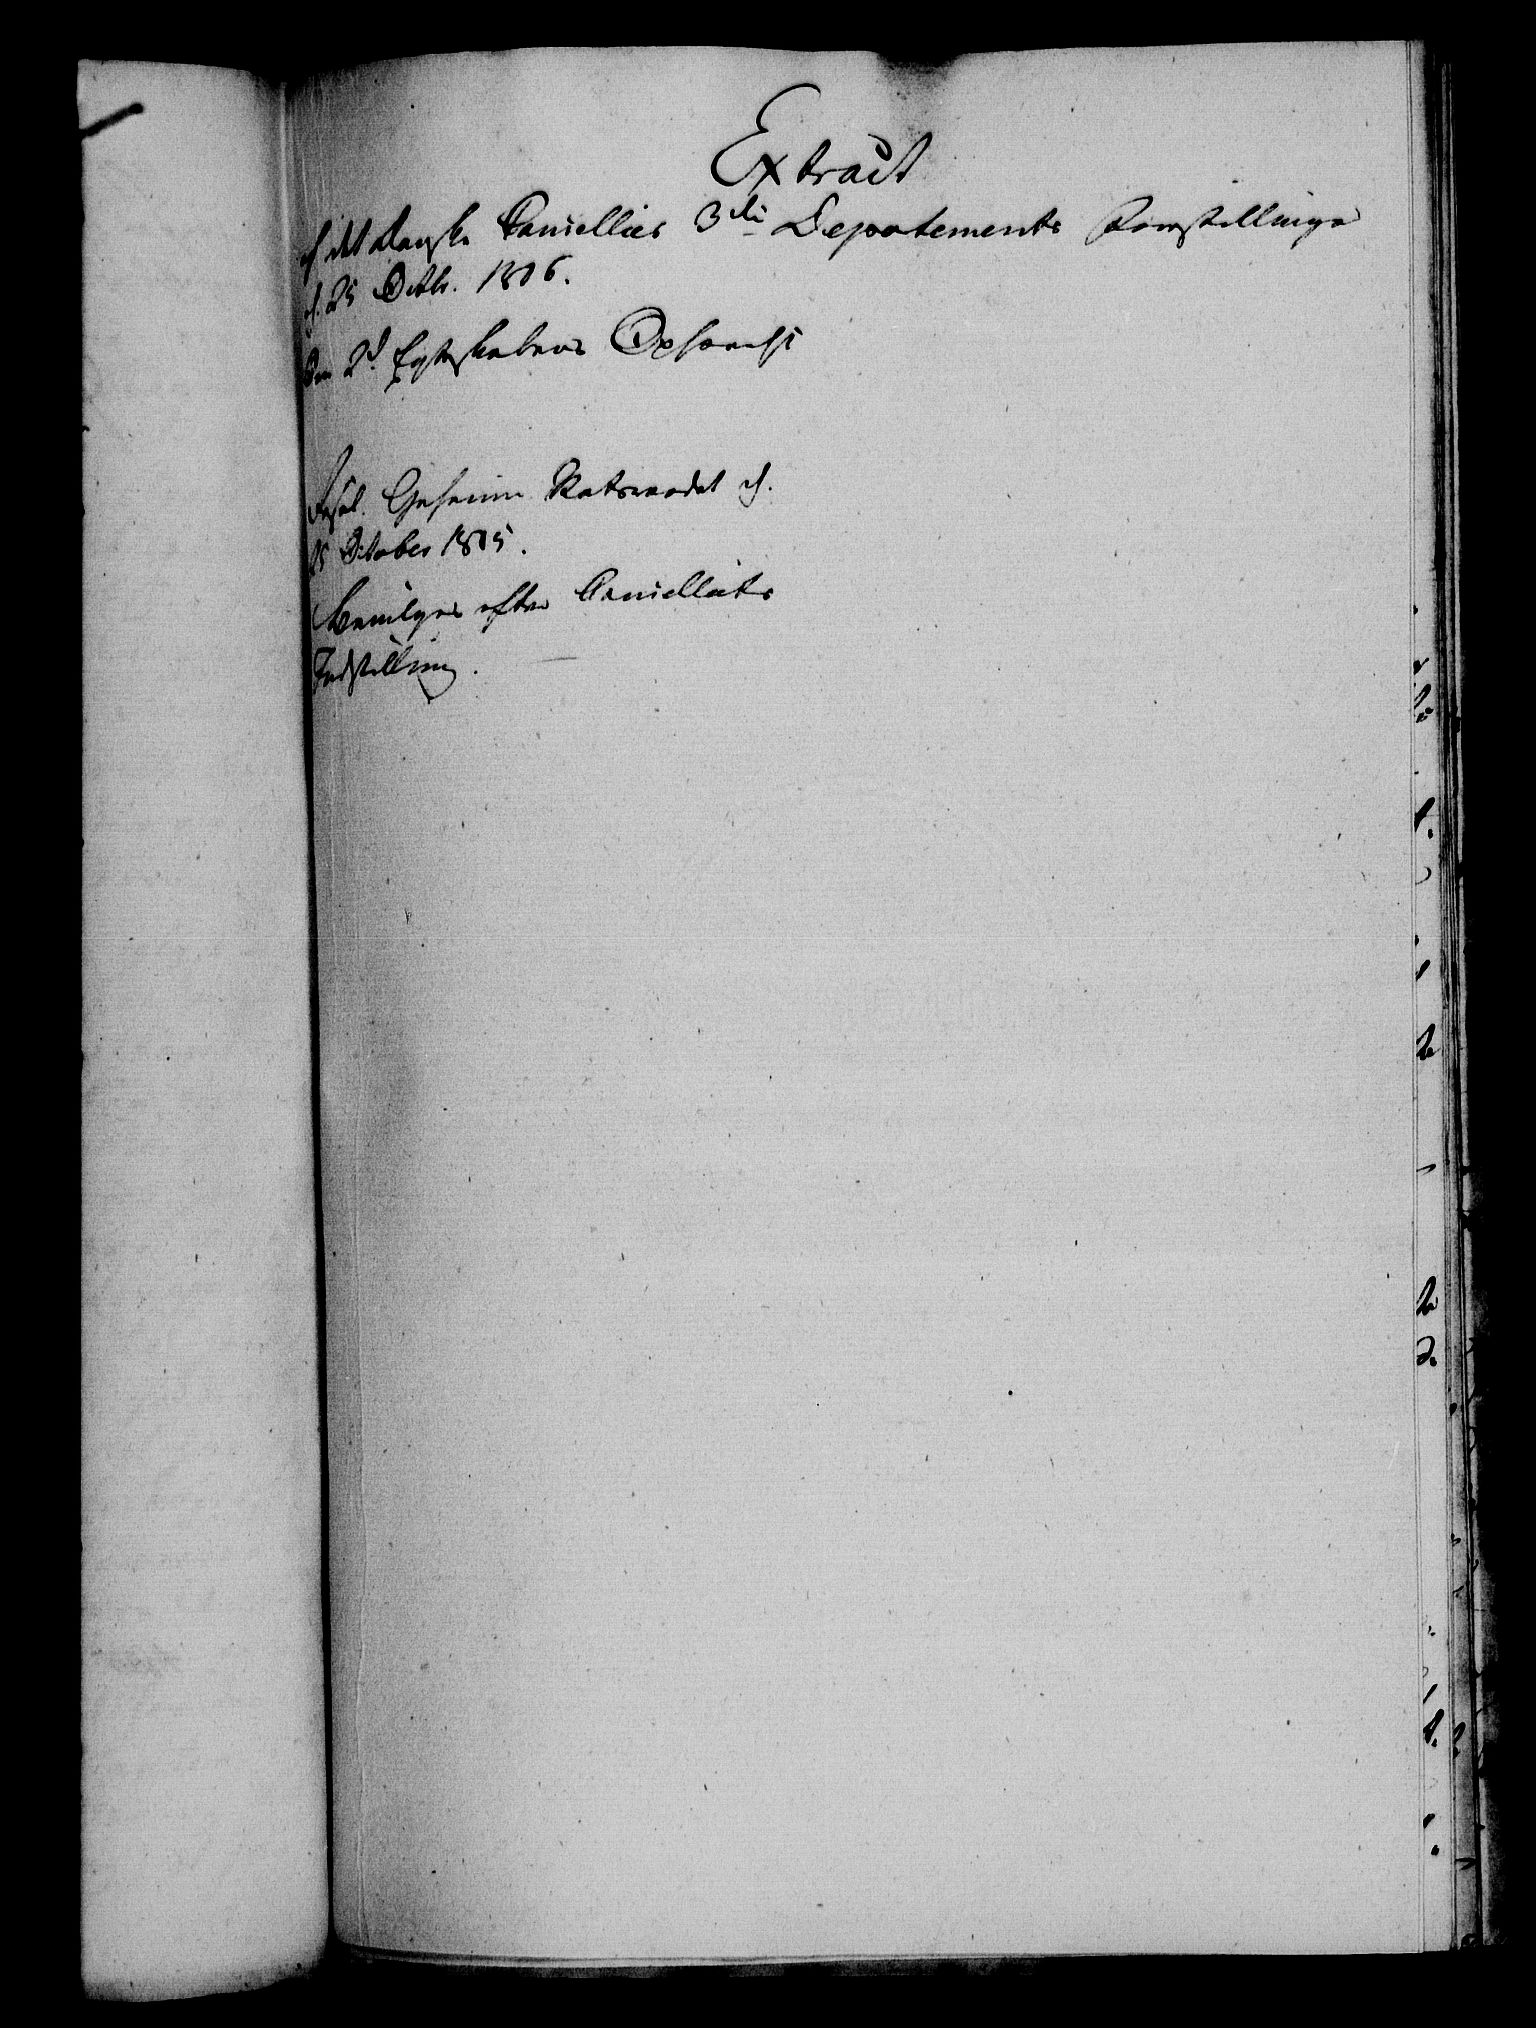 Extract
af det Danske Cancellies 3die Departements Forestillinger
d. 25 Octbr. 1806.
Om 2d. Egteskabers Ophævelse
Resol. Geheime Statsraadet d.
25 October 1805.
Bevilges efter Cancelliets
Indstilling.